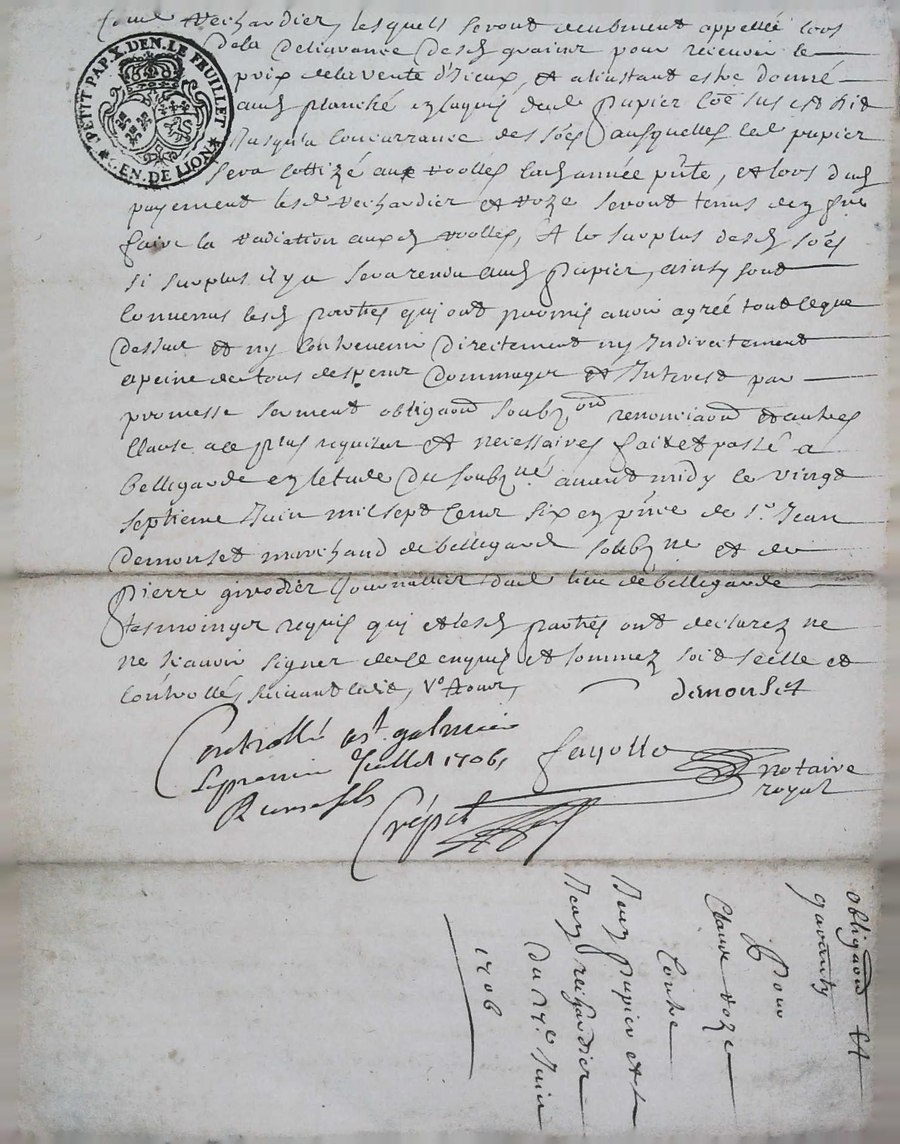 PETIT PAP. X. DEN. LE FEUILLET
G.EN. DE LION
Verchardier, lesquels seront deubment appellés lors
de la delivrance desd grains pour recevoir le
prix de la vente d'Iceux, et a linstant estre donné
aud planché dud papier sus est dit
Jusqu'a concurrance des so'es ausquelles led papier
sera cottizé aux roolles lad année p'nte, et lors dud
payement lesd Verchardier et Voze seront tenus
faire la radiation auxd roolles, et le surplus desd so'es
si surplus il y a sera rendu aud papier, ainsy sont
convenus lesd parties qui ont promis avoir agréé tout ce que
dessus et ny contrevenir directement ny Indirectement
a peine de tous despens dommages et Interest par
promesse serment obligaon soubz on renonciaon et autres
clause a ce plus requises et necessaires fait et passé a
bellegarde en létude du soubzné avant midy le vingt
septieme Juin mil sept cens six en p'nce de sr Jean
demouset marchand de bellegarde soubzne et de
pierre girodier Journallier dud lieu de bellegarde
tesmoinger requis qui et lesd parties ont declarez ne
ne scavoir signer de ce enquis et sommez soit scelle et
controllés suivant ledit,
demouset
Controllé a st galmier
Le premier Juillet 1706
fayolle
notaire
royal
Crépet
obligaon et
garanty
pour
Claude Voze
Contre
Jean papier et
Jean Verchardier
du 27e Juin
1706